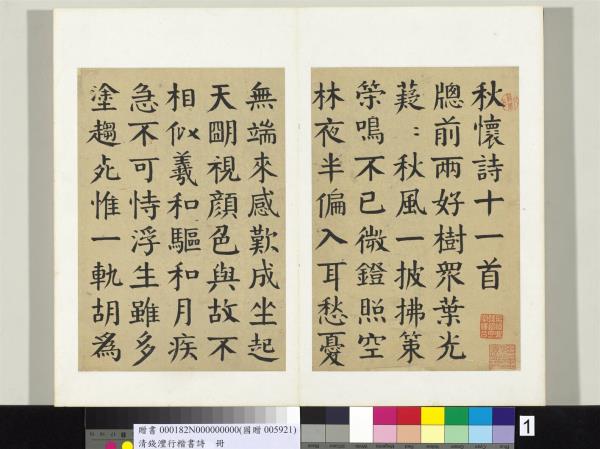 秋懷詩十一首
牕前兩好樹眾葉光
薿〻秋風一披拂策
策鳴不已微鐙照空
林夜半偏入耳愁憂
無端來感歎成坐起
天朙視顏色與故不
相似羲和驅和月疾
急不可恃浮生雖多
塗趨死惟一軌胡為
贈書 000182N000000000(國贈 005921)
清錢灃行楷書詩 冊
1